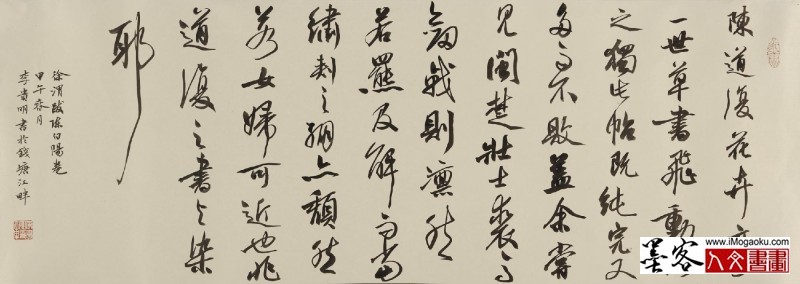 陳道復花卉
一世草書飛動
之獨此帖既純完又
多而不敗蓋余嘗
見閩楚壯士裘馬
劍戟則凜然
若羆及解而當
繡刺之綳亦頹然
若女婦可近也非
道復之書與染
耶
徐渭跋陳白陽卷
甲午春月
李貴明書於錢塘江畔
墨客
www.iMogaoku.com
人文書畫